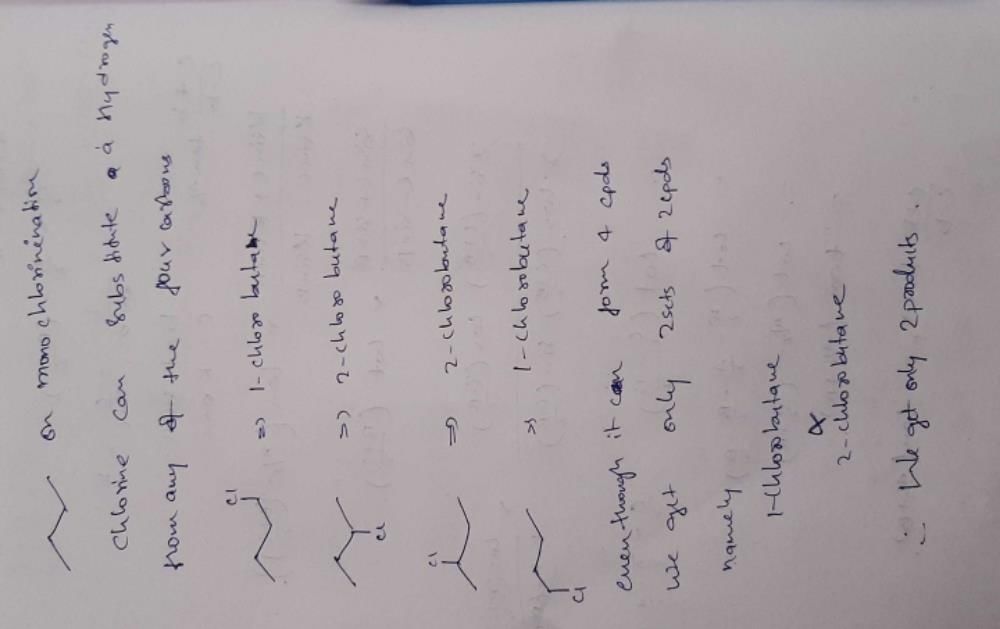 on monochlorination
Chlorine can substitute a a Hydrogen
from any of the four carbons
Cl => 1-chlorobutane
Cl => 2-chlorobutane
Cl => 2-chlorobutane
Cl => 1-chlorobutane
eventhough it can form 4 cpds
We get only 2sets of 2cpds
namely
1-chlorobutane
&
2-chlorobutane
∴ We get only 2products.